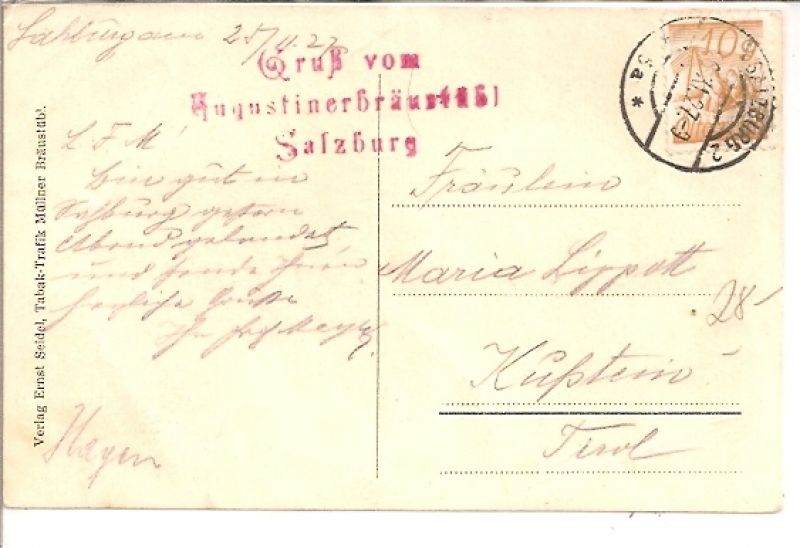 Salzburg am 25/11.27
Gruß vom
Augustinerbräustübl
Salzburg
10g
SALZBURG 2
5a *
Verlag Ernst Seidel, Tabak-Trafik Müllner Bräustübl.
L. F. M!
Bin gut in
Salzburg gestern
Abend gelandet
und sende Ihnen
herzliche Grüße
Ihr
Fräulein
Maria Lippott
28
Kufstein
Tirol